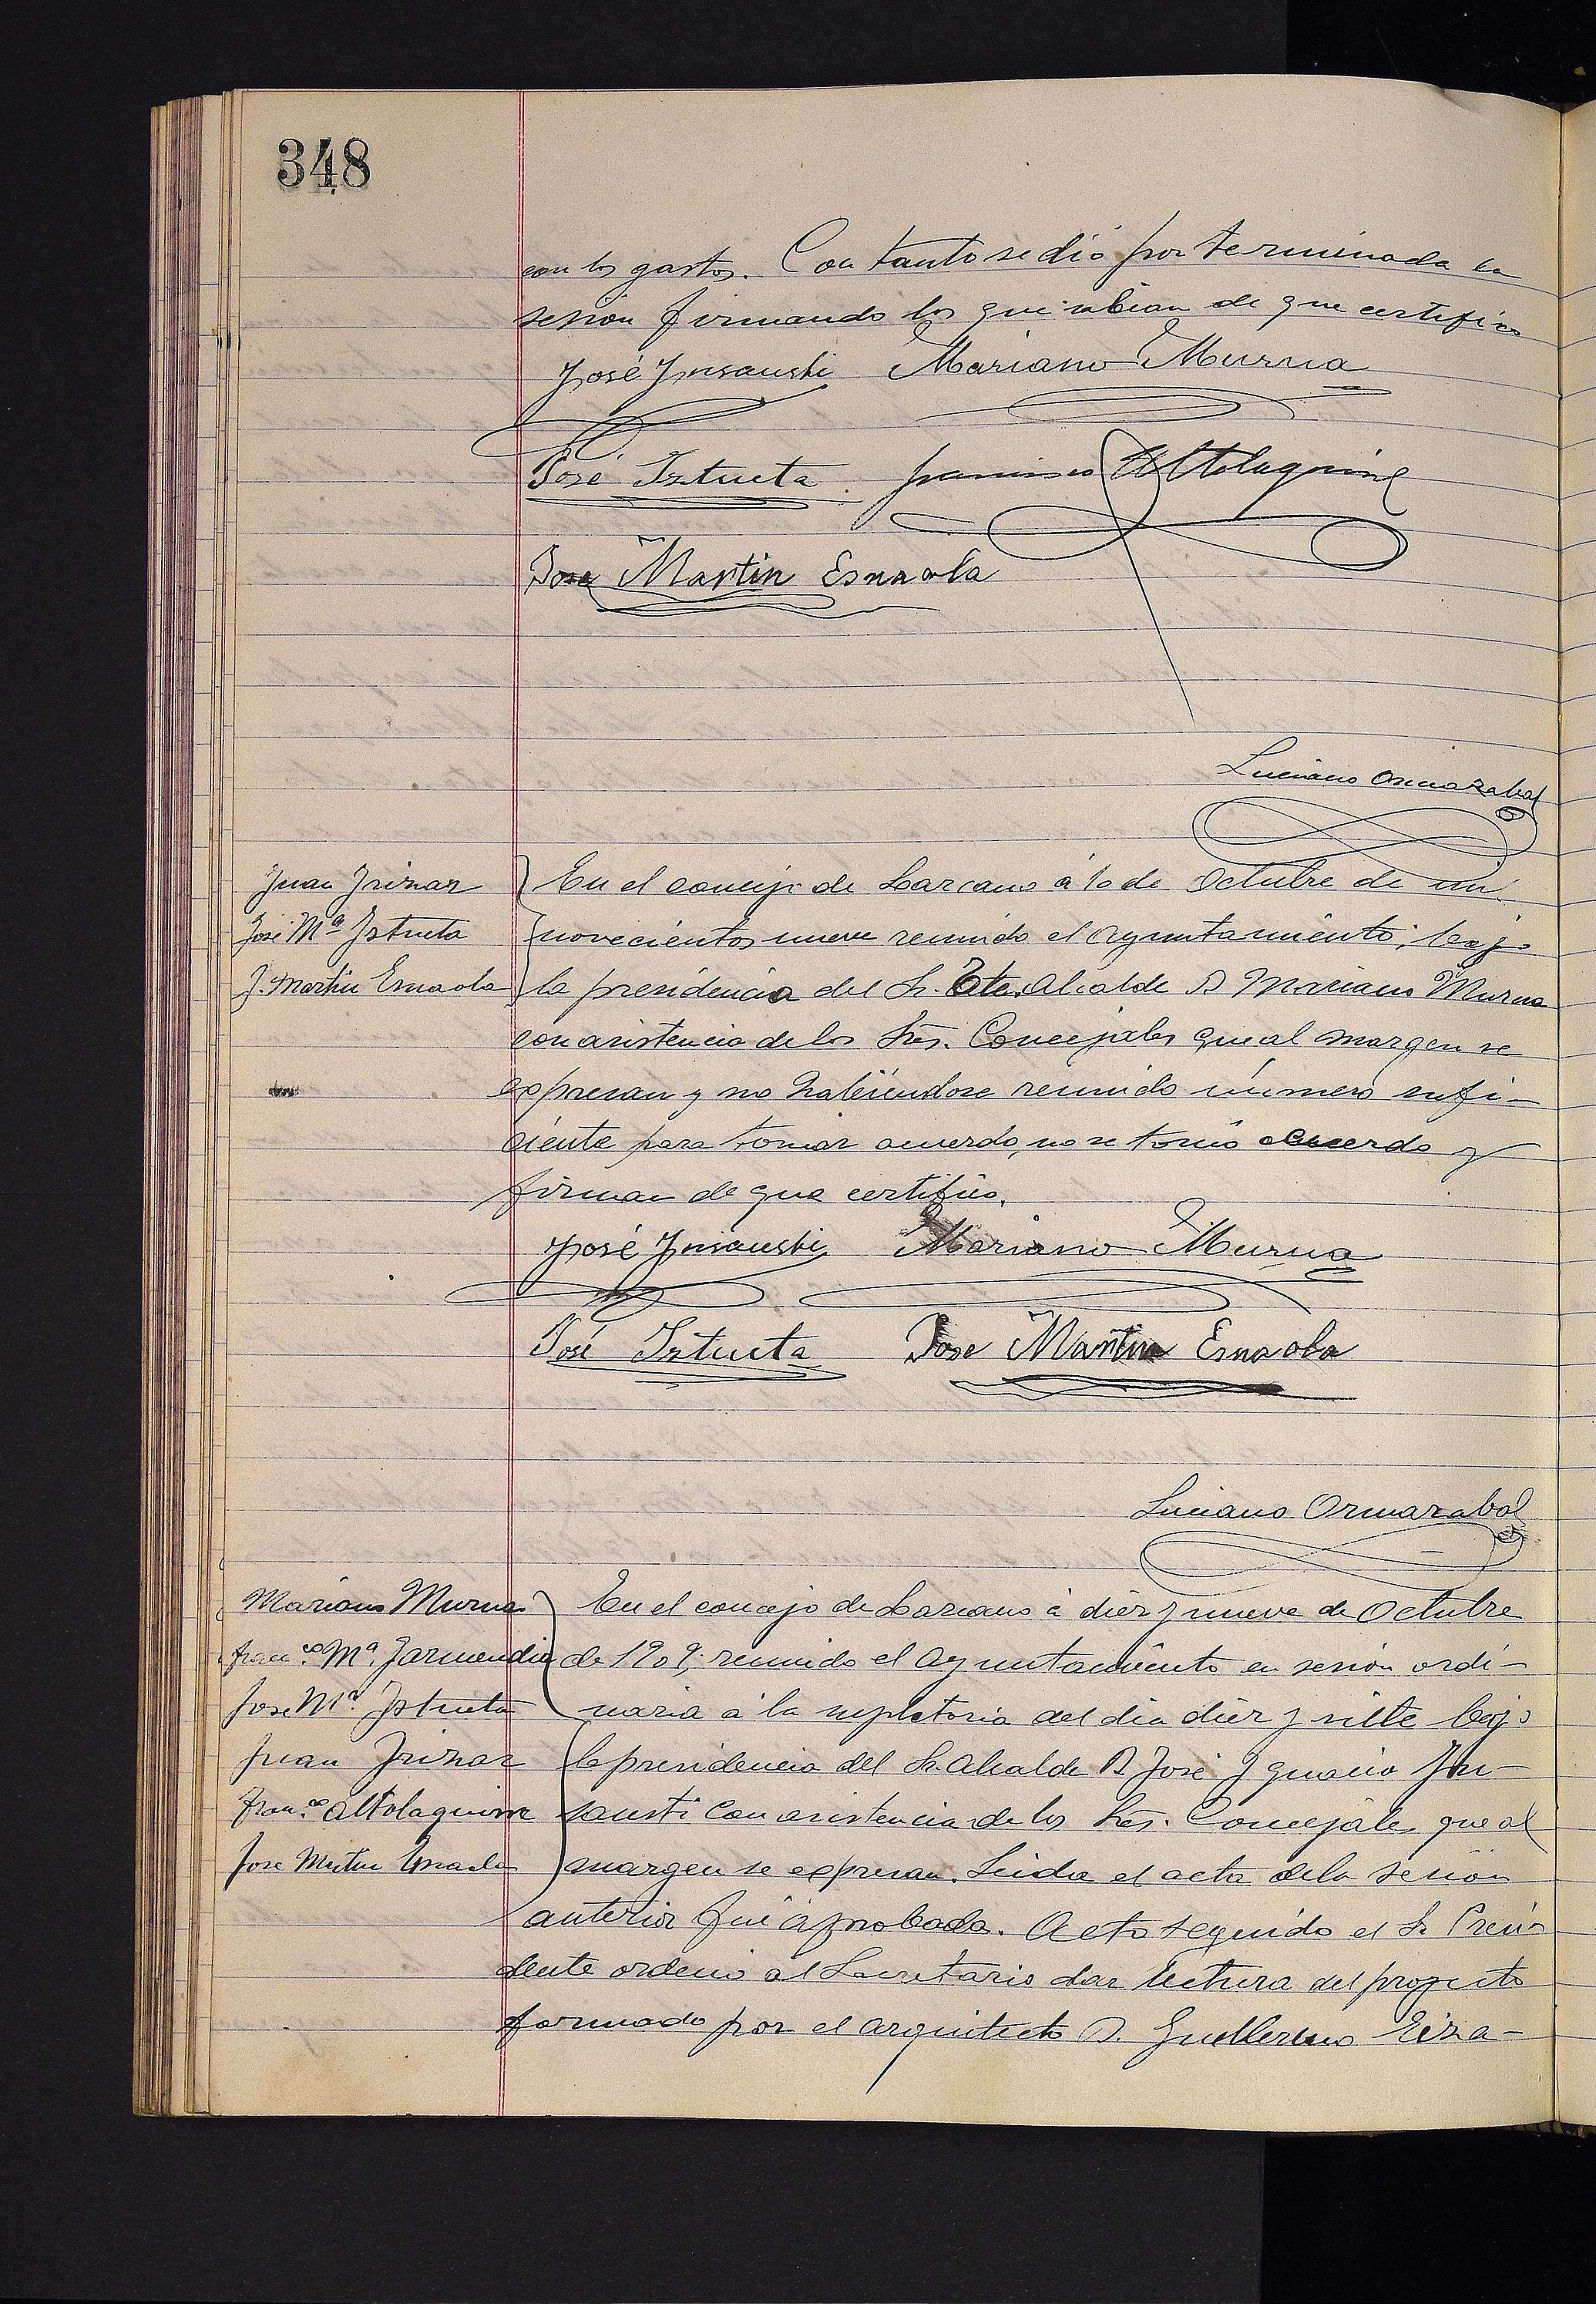 348
con los gastos. Con tanto se dió por terminada la
sesion firmando los que sabian de que certifico
José Ynsausti Mariano Murua
José Iztueta. Francisco Altolaguirre
Jose Martin Esnaola
Luciano Ormazabal
Juan Irizar
José Mª Iztueta
J. Martin Esnaola
En el concejo de Lazcano á 10 de Octubre de mil
novecientos nueve reunido el Ayuntamiento; bajo
la presidencia del Sr. Tte. Alcalde D Mariano Murua
con asistencia de los Srs. Concejales que al margen se
expresan y no habiéndose reunido número sufi-
ciente para tomar acuerdo, no se tomó acuerdo y
firman de que certifico.
José Ynsausti Mariano Murua
José Iztueta Jose Martin Esnaola
Luciano Ormazabal
Mariano Murua
Fran.co Mª. Garmendia
Jose Mª. Iztueta
Juan Irizar
Fran.co Altolaguirre
Jose Martin Esnaola
En el concejo de Lazcano á diez y nueve de Octubre
de 1909, reunido el Ayuntamiento en sesion ordi-
naria á la supletoria del dia diez y siete bajo
la presidencia del Sr. Alcalde D José Ygnacio Yn-
sausti con asistencia de los Srs. Concejales que al
margen se expresan. Leida el acta de la sesion
anterior fué aprobada. Acto seguido el Sr Presi
dente ordenó al Secretario dar lectura del proyecto
formado por el arquitecto D. Guillermo Eiza-